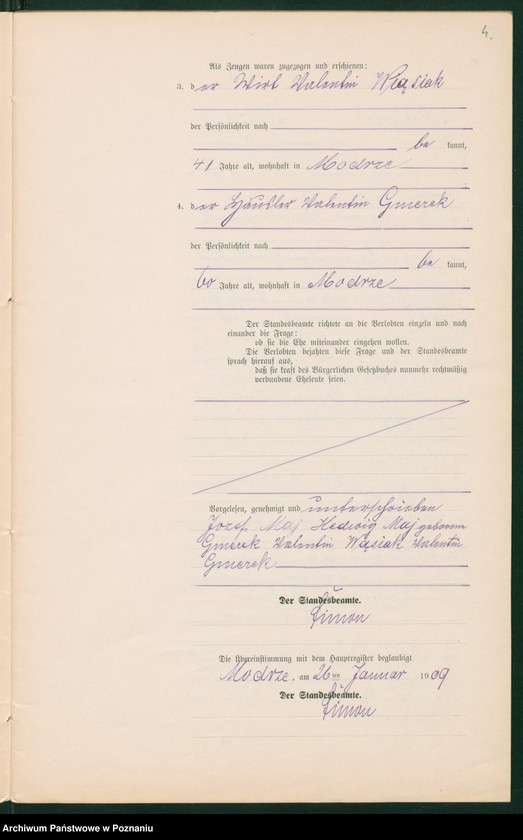 4.
Als Zeugen waren zugezogen und erschienen:
3. der Wirt Valentin Wąsiak
der Persönlichkeit nach
be kannt,
41 Jahre alt, wohnhaft in Modrze
4. der Häusler Valentin Gmerek
der Persönlichkeit nach
be kannt,
60 Jahre alt, wohnhaft in Modrze
Der Standesbeamte richtete an die Verlobten einzeln und nach
einander die Frage:
ob sie die Ehe miteinander eingehen wollen.
Die Verlobten bejahten diese Frage und der Standesbeamte
sprach hierauf aus,
daß sie kraft des Bürgerlichen Gesetzbuches nunmehr rechtmäßig
verbundene Eheleute seien.
Vorgelesen, genehmigt und unterschrieben
Jozef Maj Hedwig Maj geborene
Gmerek Valentin Wąsiak Valentin
Gmerek
Der Standesbeamte.
Die Übereinstimmung mit dem Hauptregister beglaubigt
Modrze, am 26 ten Januar 1909
Der Standesbeamte.
Archiwum Państwowe w Poznaniu